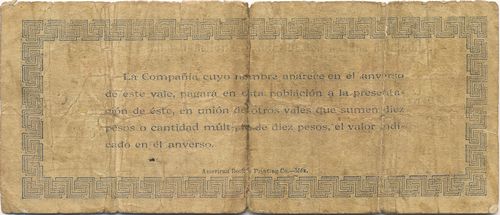 La Compañía, cuyo nombre aparece en el anverso
de este vale, pagará en esta población á la presenta-
ción de éste, en unión de otros vales que sumen diez
pesos o cantidad múltiplo de diez pesos, el valor indi-
cado en el anverso.
American Book & Printing Co.—Méx.